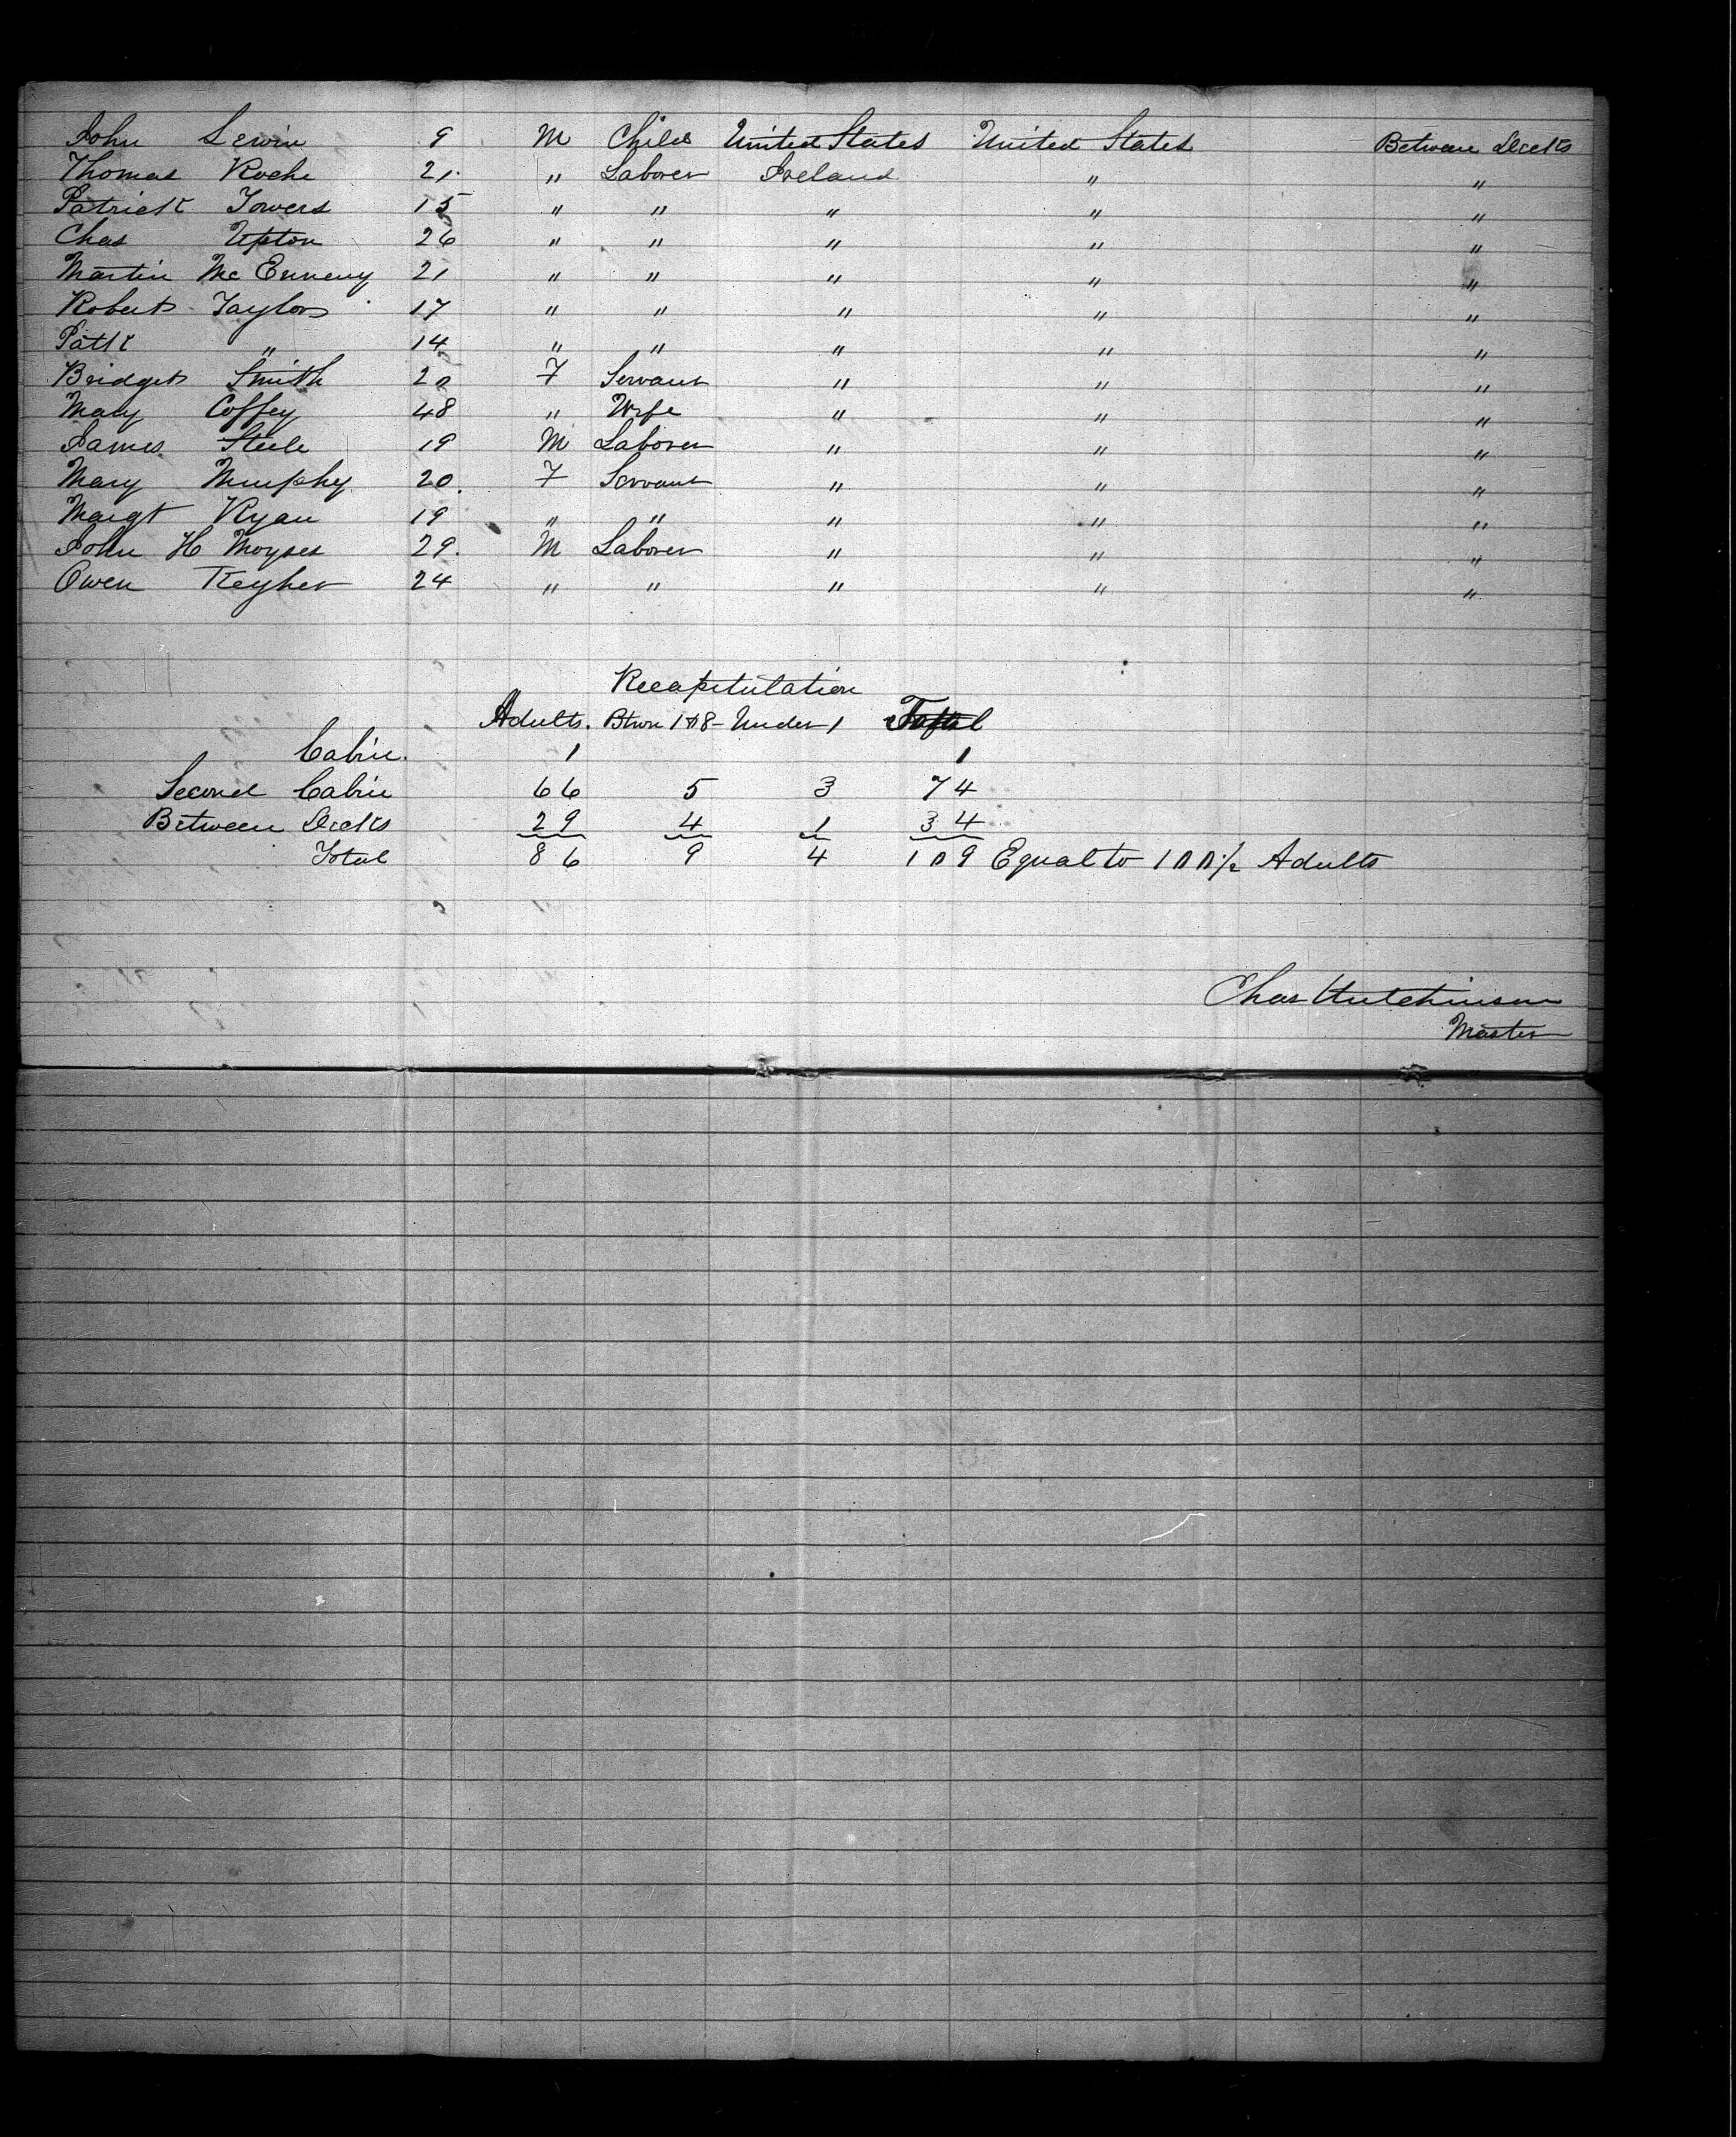 John Lewin 9 M Child United States United States Between Decks
Thomas Roche 21 " Laborer Ireland " "
Patrick Towers 15 " " " " "
Chas Upton 26 " " " " "
Martin McEnneny 21 " " " " "
Robert Taylor 17 " " " " "
Patk " 14 " " " " "
Bridget Smith 20 F Servant " " "
Mary Coffey 48 " Wife " " "
James Steele 19 M Laborer " " "
Mary Murphy 20 F Servant " " "
Margt Ryan 19 " " " " "
John H Moyses 29 M Laborer " " "
Owen Keyher 24 " " " " "
Recapitulation
Adults. Btwn 1 & 8 - Under 1 Total
Cabin. 1 1
Second Cabin 66 5 3 74
Between Decks 29 4 1 34
Total 86 9 4 109 Equal to 100 1/2 Adults
Chas Hutchinson
Master